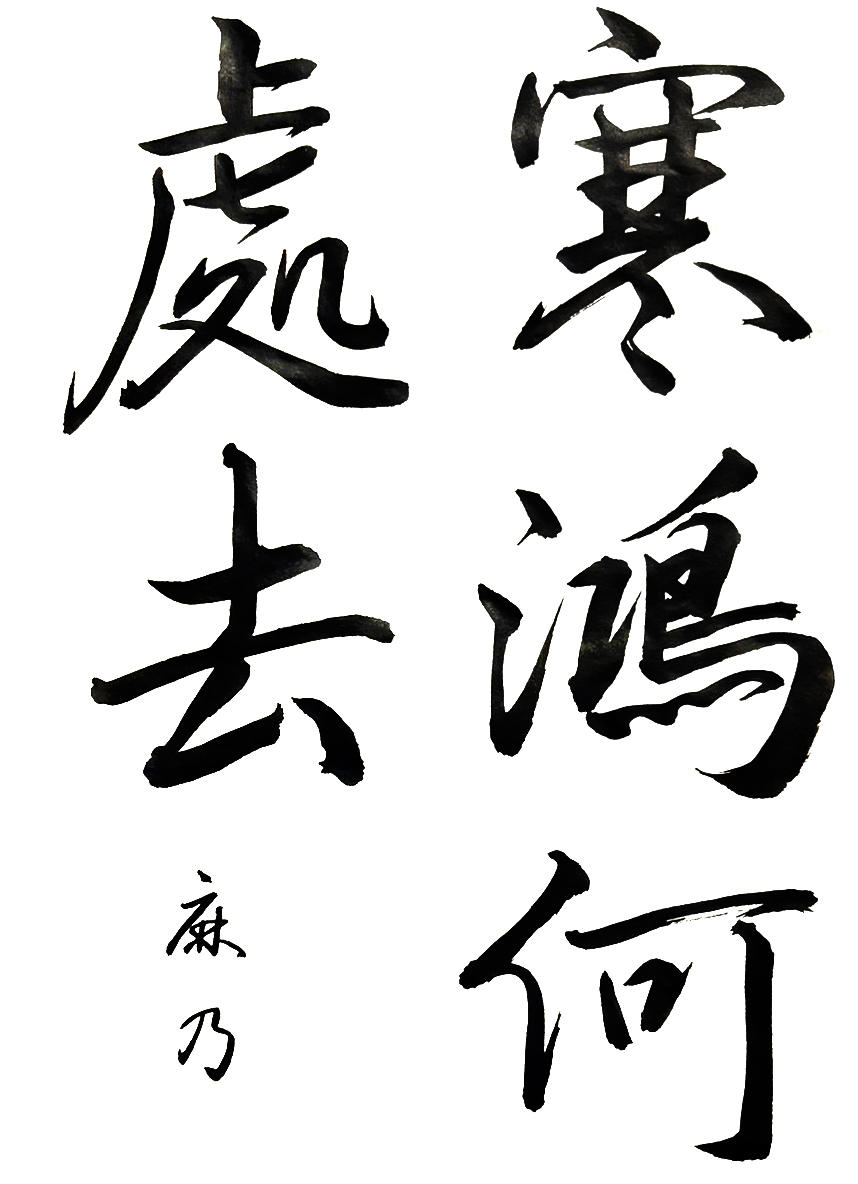 寒鴻何
處去
麻乃